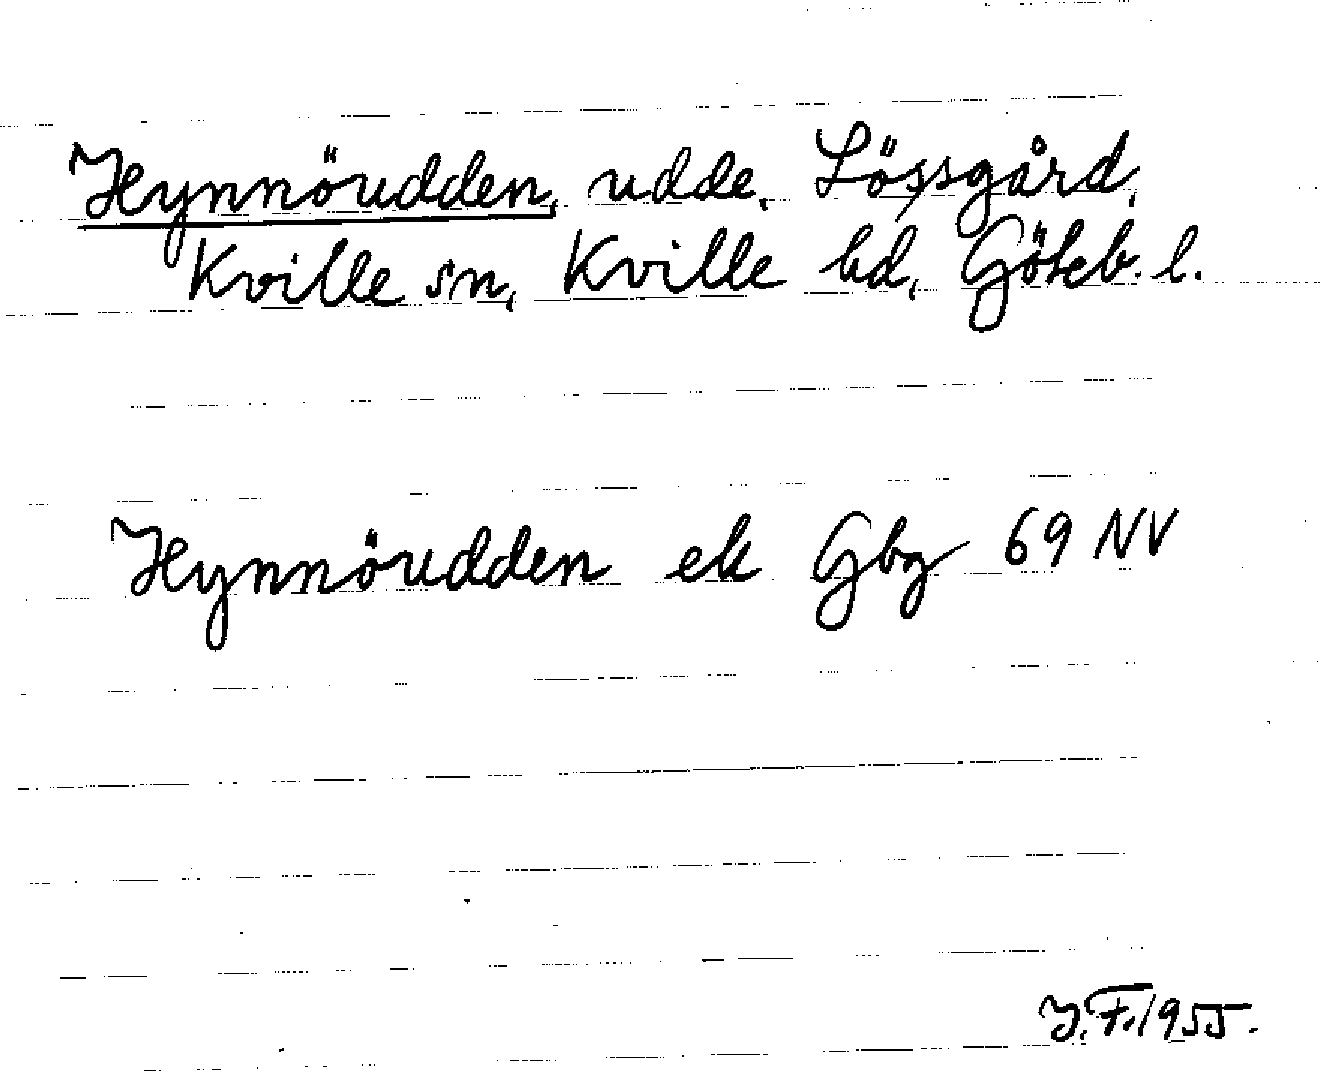 Hynnöudden, udde, Lössgård,
Kville sn, Kville hd, Göteb. l.
Hynnöudden ek Gbg 69 NV
J.F. 1955.